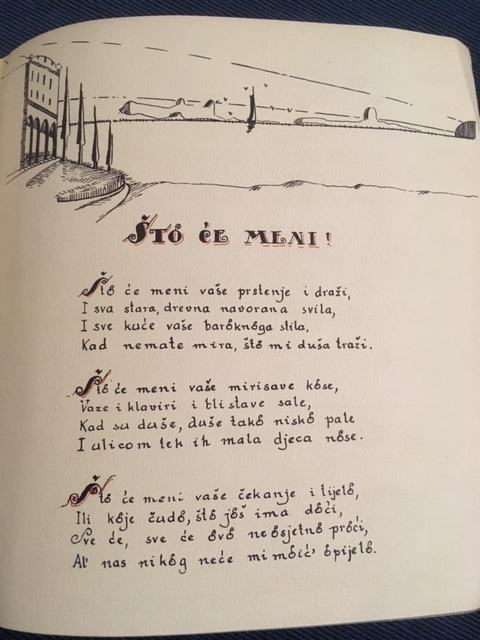 Što će meni!
Što će meni vaše prstenje i draži,
I sva stara, drevna navorana svila,
I sve kuće vaše baroknoga stila,
Kad nemate mira, što mi duša traži.
Što će meni vaše mirisave kose,
Vaze i klaviri i blistave sale,
Kad su duše, duše tako nisko pale
I ulicom tek ih mala djeca nose.
Što će meni vaše čekanje i tijelo,
Ili koje čudo, što još ima doći,
Sve će, sve će ovo neosjetno proći,
Al' nas nikog neće mimoić' opijelo.